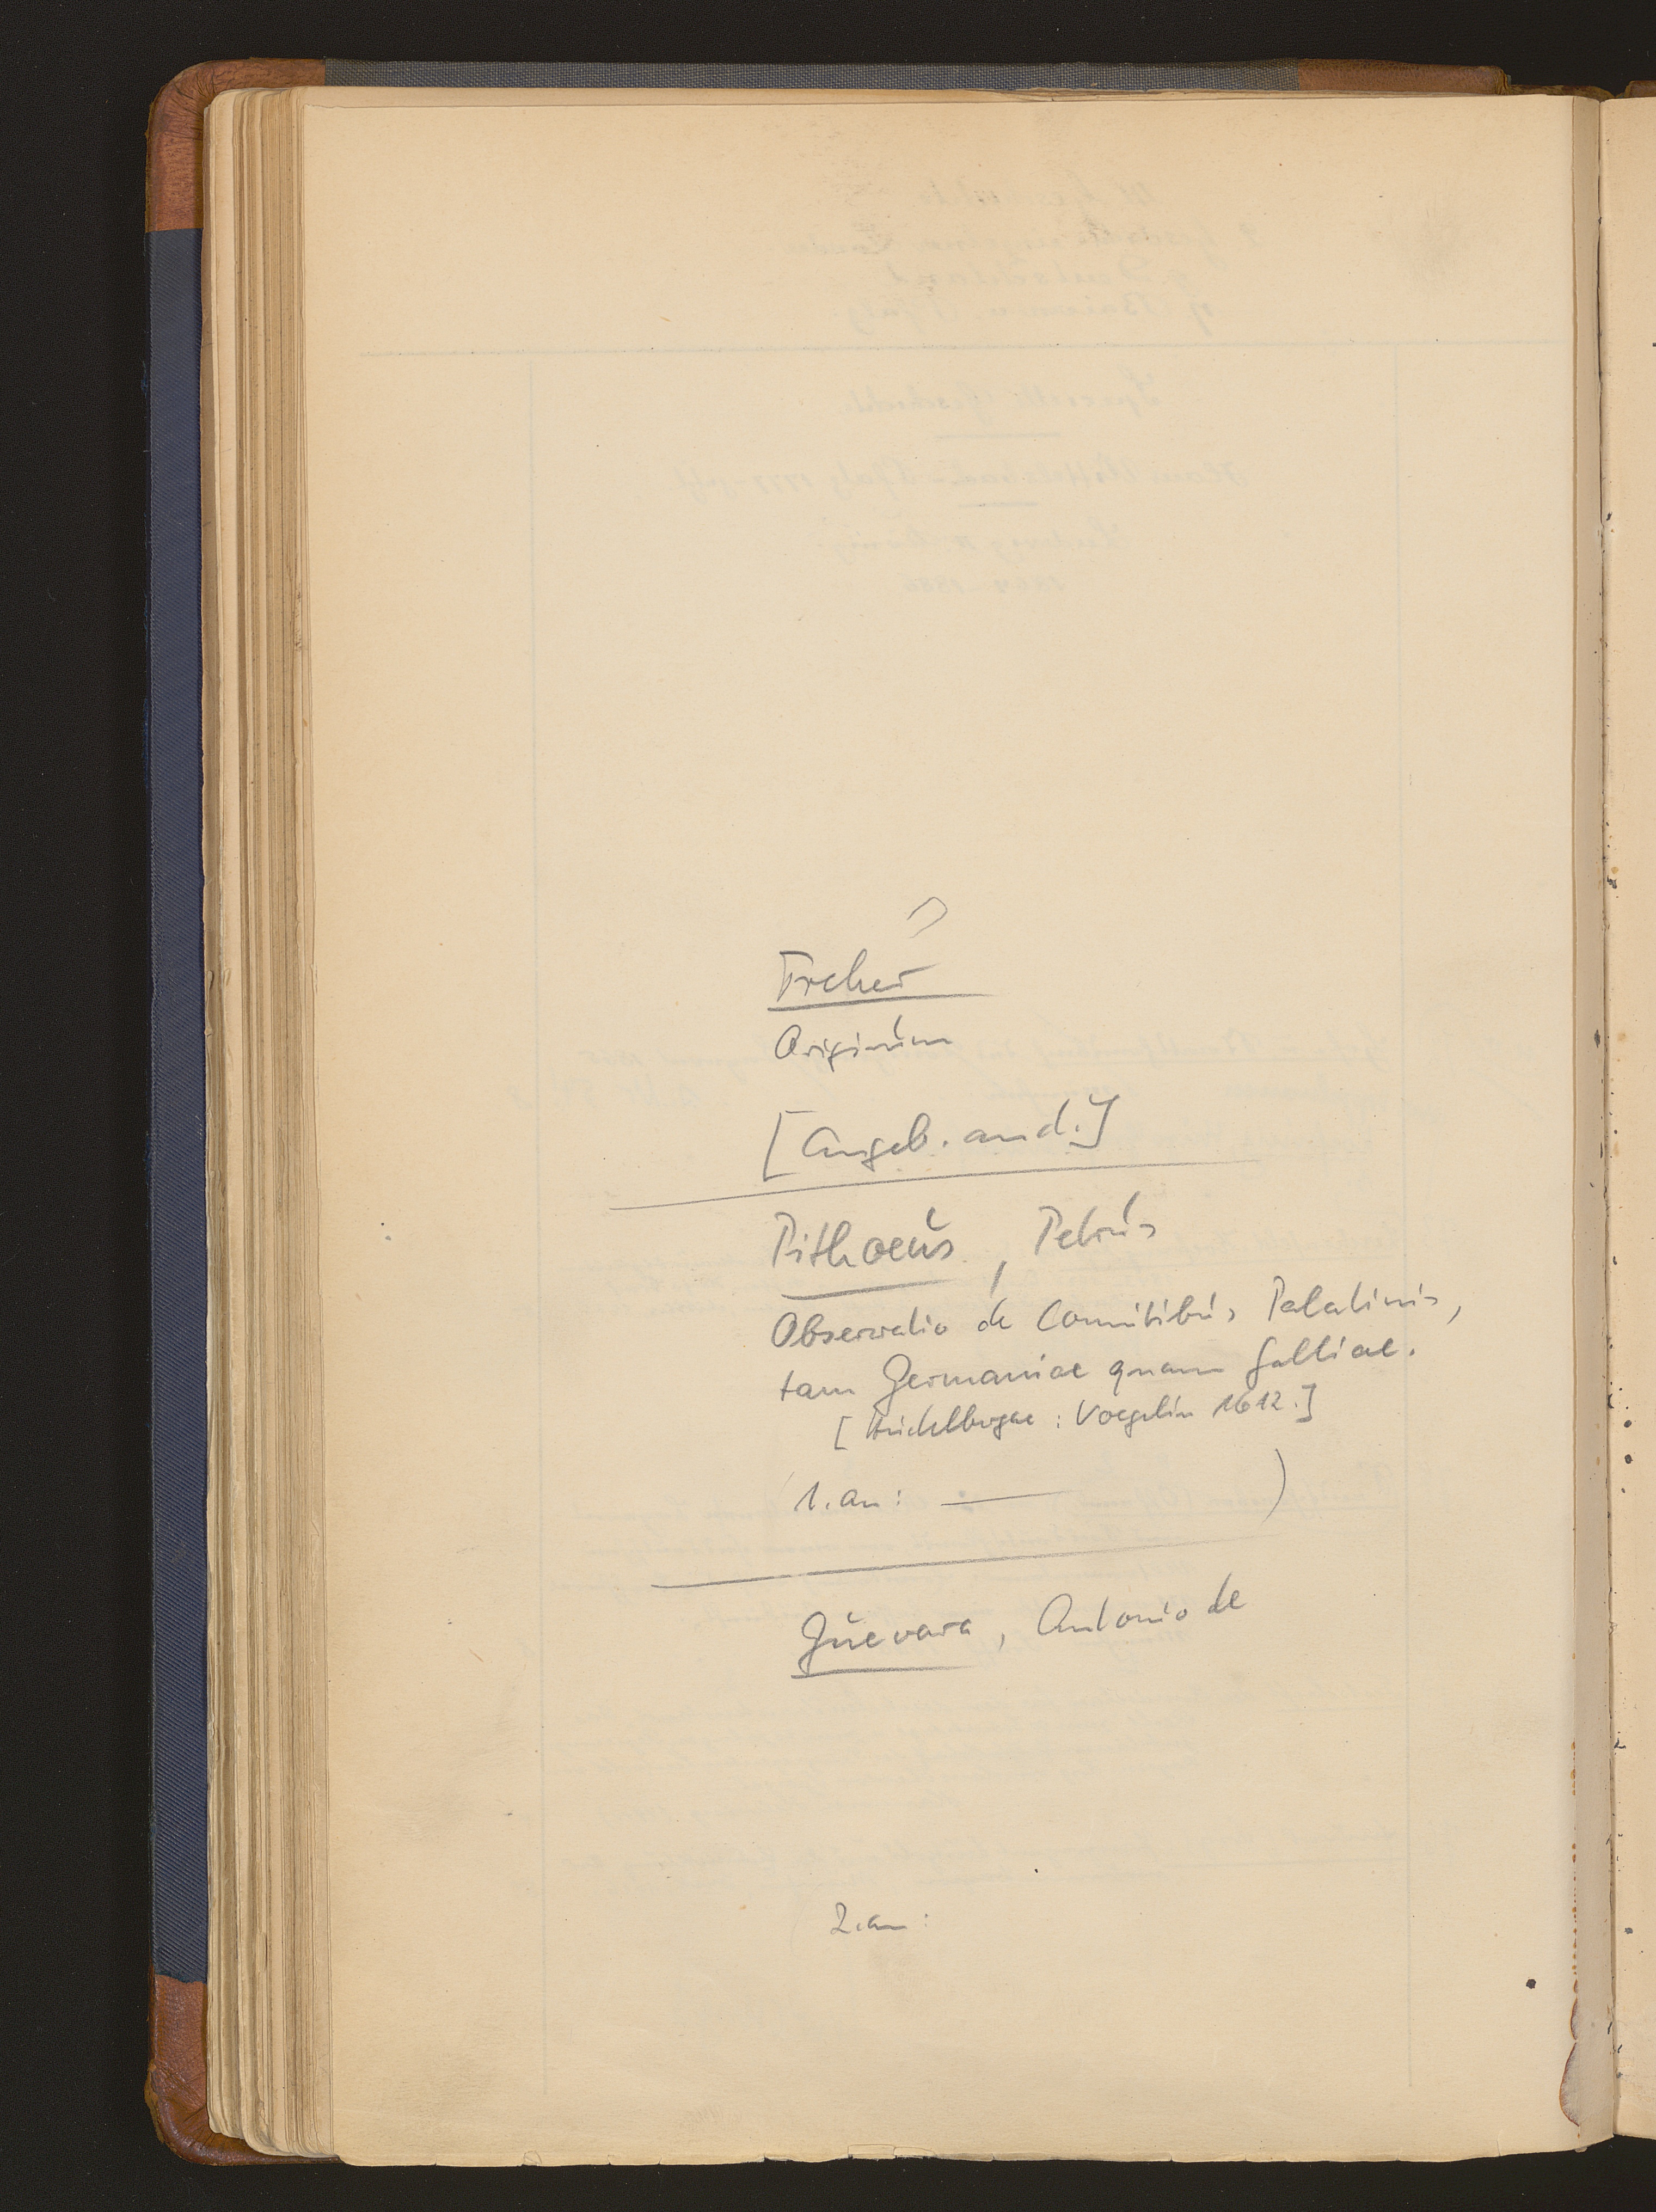 Freher
Originum
[Angeb. and.]
Pithoeus, Petrus
Observatio de Comitibus Palatinis,
tam Germaniae quam Galliae.
[Heidelbergae : Voegelin 1612.]
1. an: ——— )
Guevara, Antonio de
2. an: